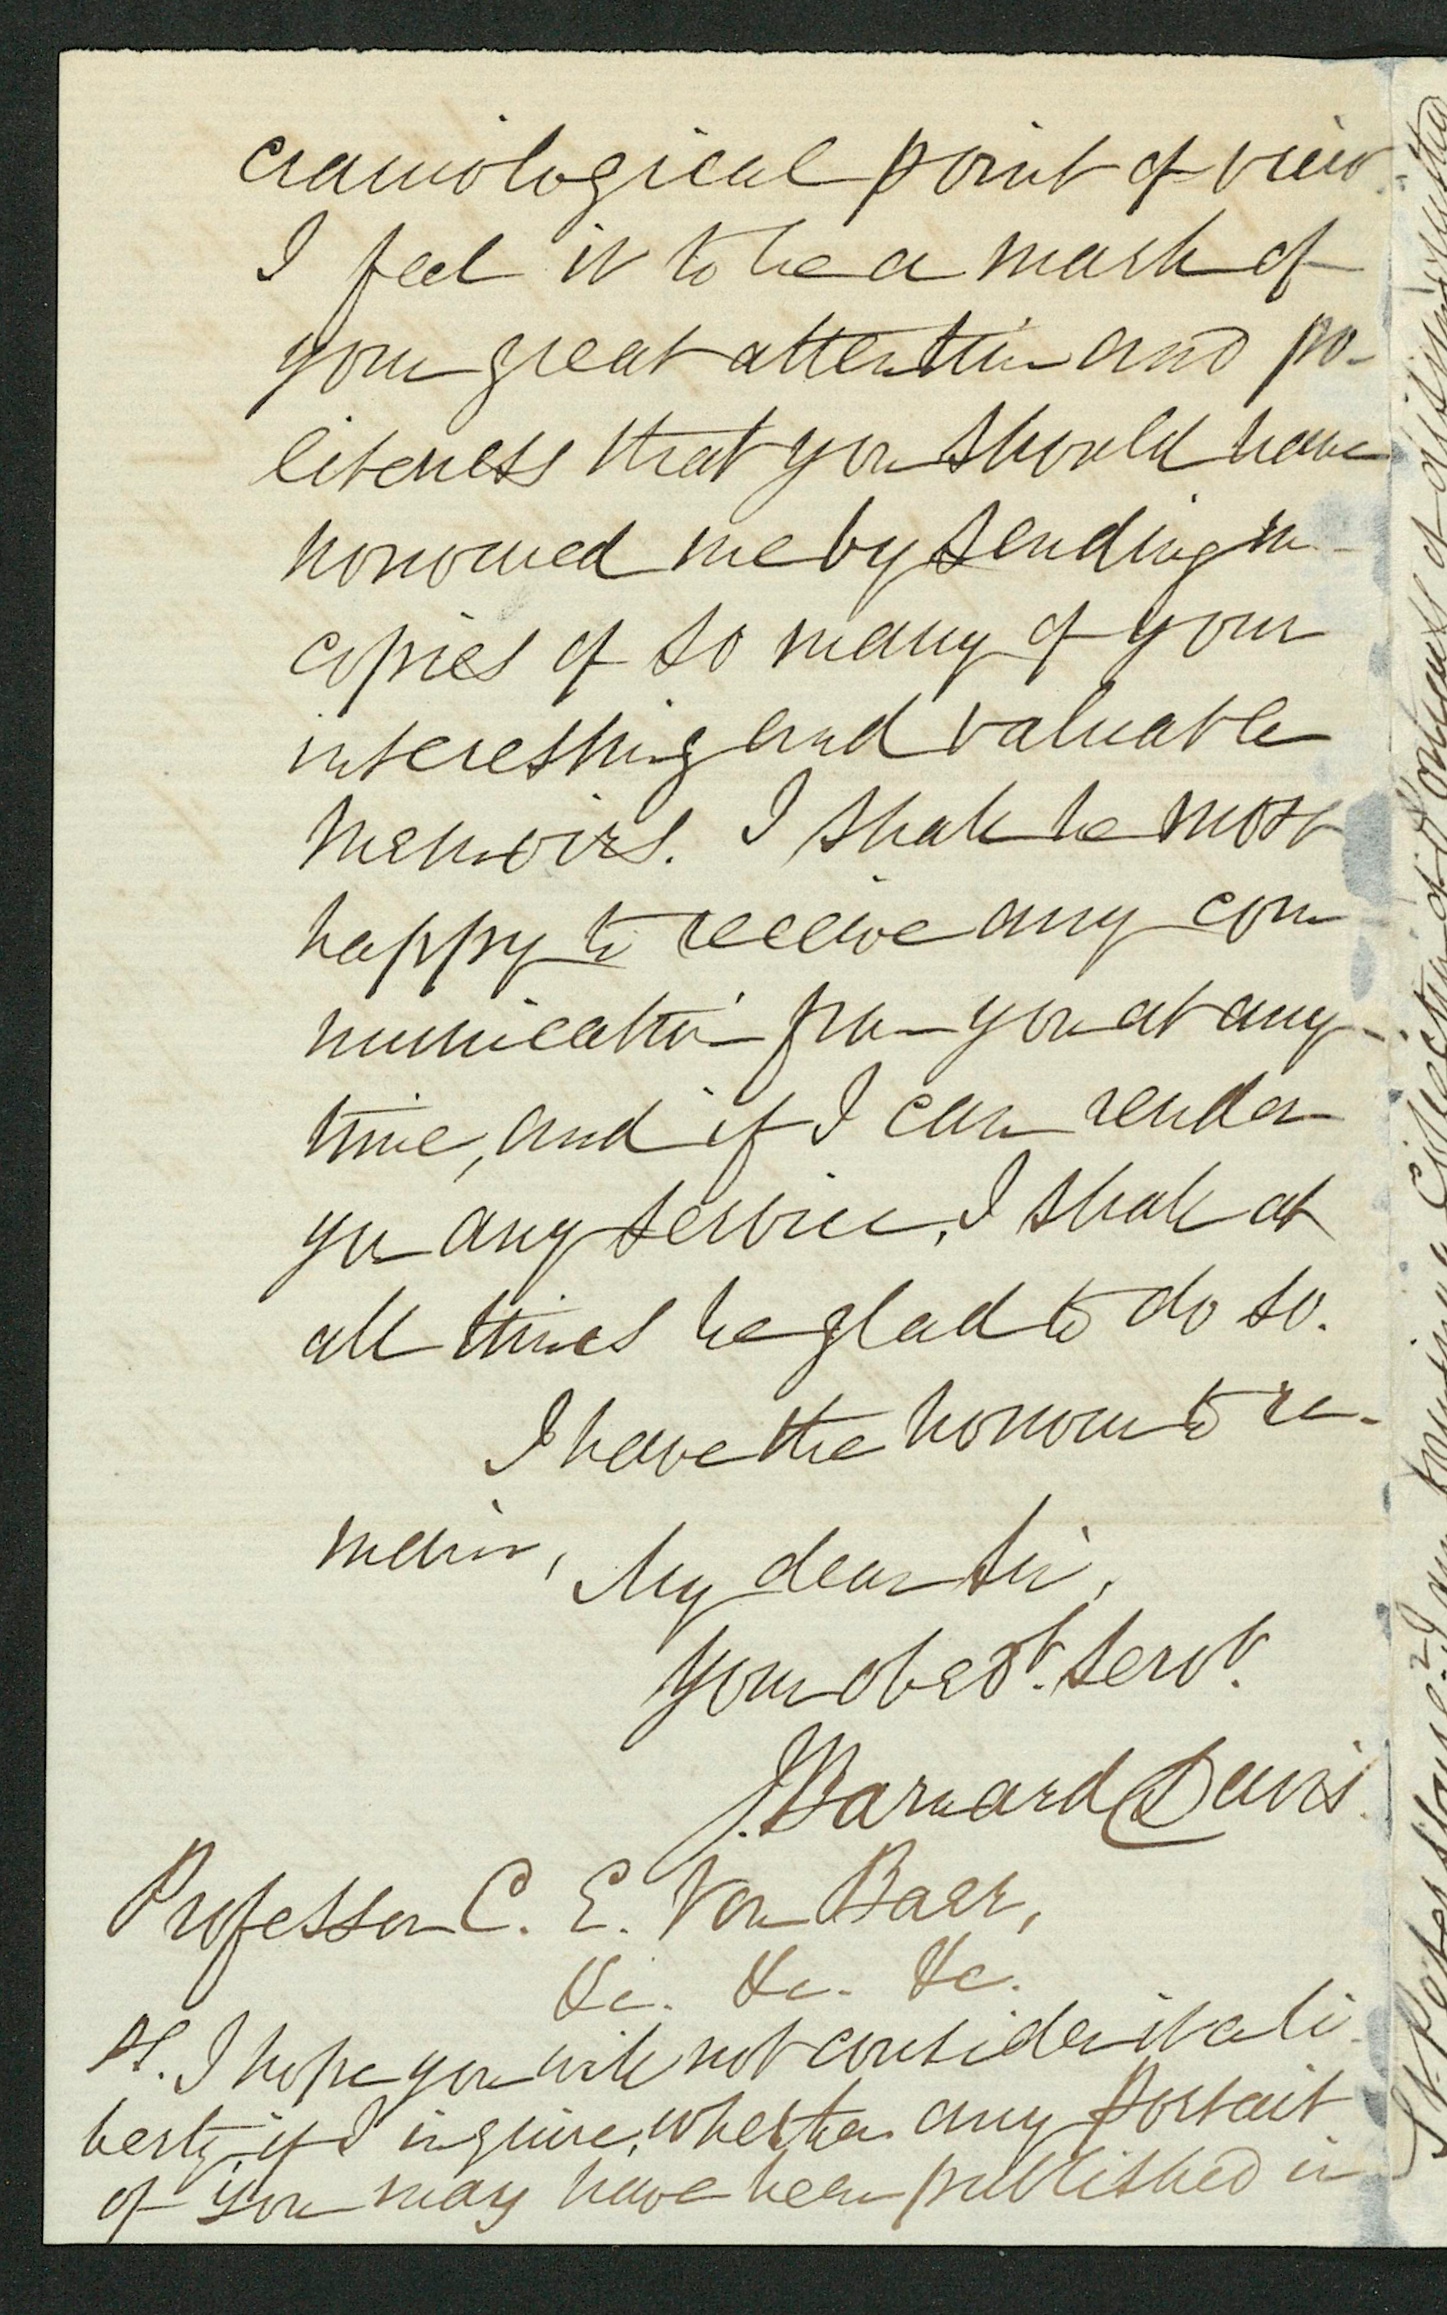 craniological point of view.
I feel it to be a mark of
your great attention and po-
liteness that you should have
honoured me by sending me
copies of so many of your
interesting and valuable
Memoirs. I shall be most
happy to receive any com
munication from you at any
time, and if I can render
you any service, I shall at
all times be glad to do so.
I have the honour to re-
main, My dear Sir,
Your obedt. Servt.
J. Barnard Davis.
Professor C. E. Von Baer,
&c. &c. &c.
PS. I hope you will not consider it a li-
berty, if I inquire, whether any Portait
of you may have been published in
St. Petersburg?